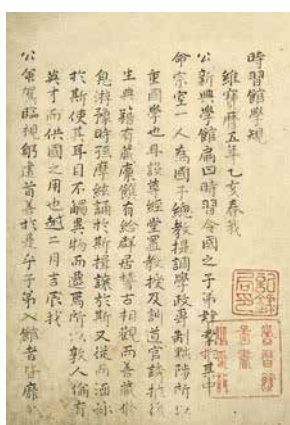 時習館學規
維寶曆五年乙亥春我
公新興學館扁曰時習令國之子弟肄於其中
命宗室一人為國子總教提調學政再制
重國學也再設尊經堂置教授及訓道官
生典籍有藏廩餼有給群居嘗古相觀而善藏脩
息游豫時孫摩絃誦於斯揖讓於斯又從而涵泳
於斯使其耳目不觸異物而遷焉所以敦人倫育
英才而供國之用也越二月吉辰我
公命駕臨視躬遺首善於是乎子弟入館者